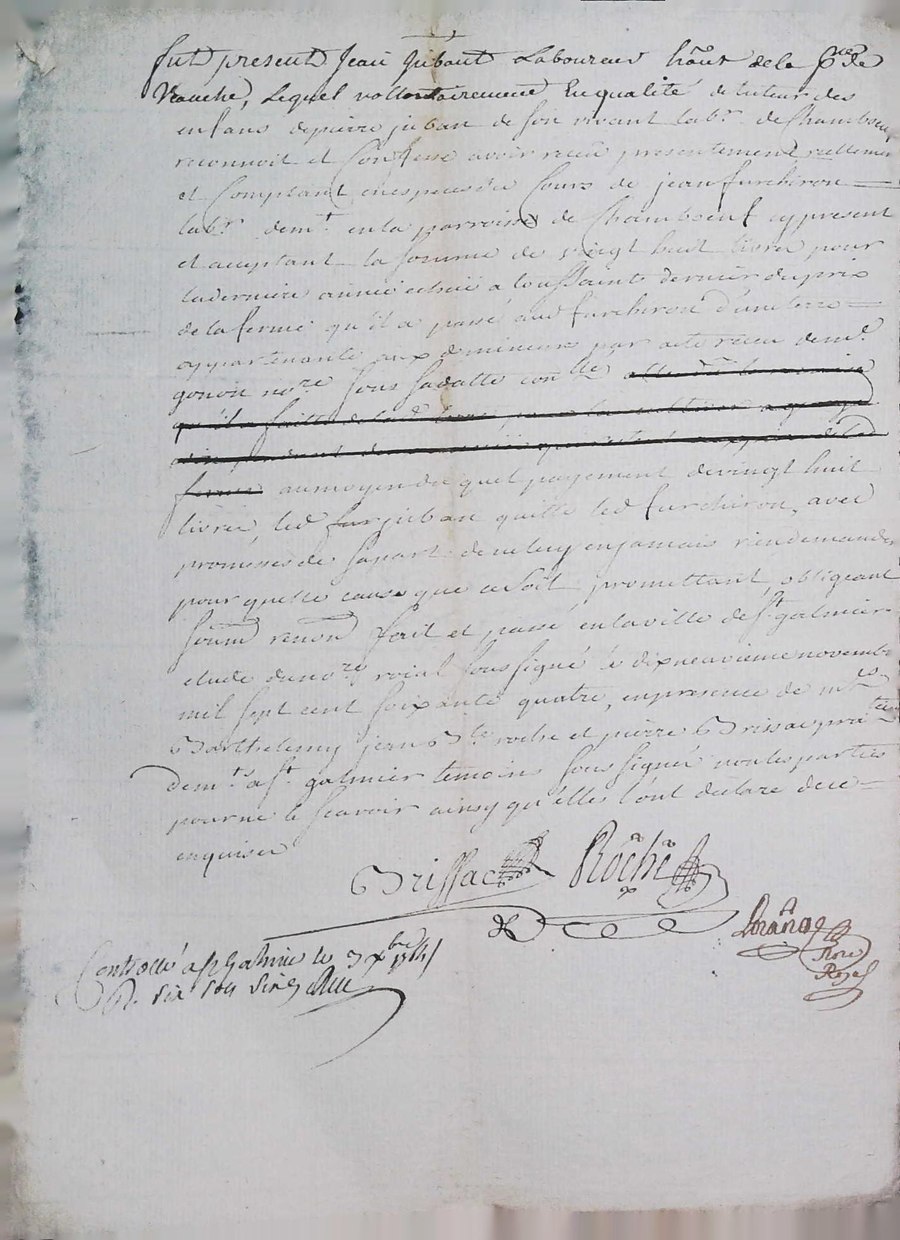 fut present Jean Juban Laboureur hãnt de la p.sse de
Veauche, Lequel vollontairement En qualité de tuteur des
enfans de pierre juban de son vivant lab.r de Chambœuf
reconnoit et Confesse avoir receu presentement reellement
et Comptant en especes du Cours de jean furchiron
lab.r dem.t en la parroisse de Chambœuf cy present
et acceptant la somme de vingt huit livres pour
la derniere année echüe a toussaints dernier du prix
de la ferme qu'il a passé aud furchiron d'une terre
appartenante aux d mineurs par acte receu de m.e
gonon no.re sous sa datte con.lle
qu'il a faitte
ferme au moyen du quel payement de vingt huit
livres, led fur juban quitte led furchiron, avec
promesses de sa part de ne luy en jamais rien demander
pour quelle cause que ce soit, promettant, obligeant
soum renon fait et passé en la ville de S.t galmier
etude du no.re roial soussigné le dix neuvieme novembre
mil sept cent soixante quatre, en presence de m.es
Barthelemy jean B.te roche et pierre Brissac pra.ciens
dem.ts a S.t galmier temoins soussignés non les parties
pour ne le scavoir ainsy qu'elles l'ont déclaré de ce
enquises
Brissac Rõche
Controllé a St Galmier le 3 x.bre 1764
R. six sols
Nore
Royal